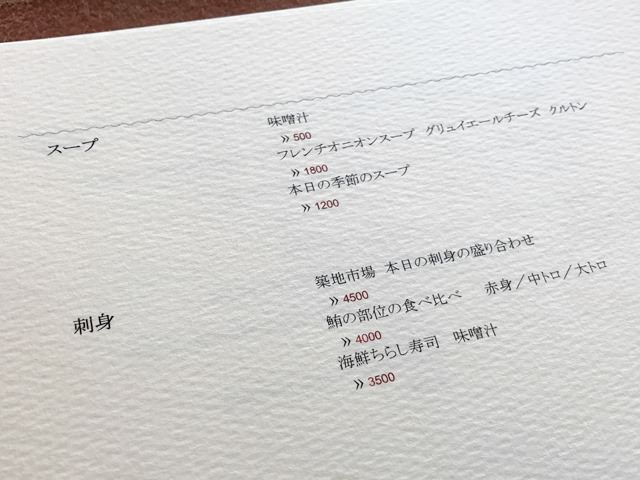 スープ
味噌汁
» 500
フレンチオニオンスープ グリュイエールチーズ クルトン
» 1800
本日の季節のスープ
» 1200
刺身
築地市場 本日の刺身の盛り合わせ
» 4500
鮪の部位の食べ比べ 赤身／中トロ／大トロ
» 4000
海鮮ちらし寿司 味噌汁
» 3500